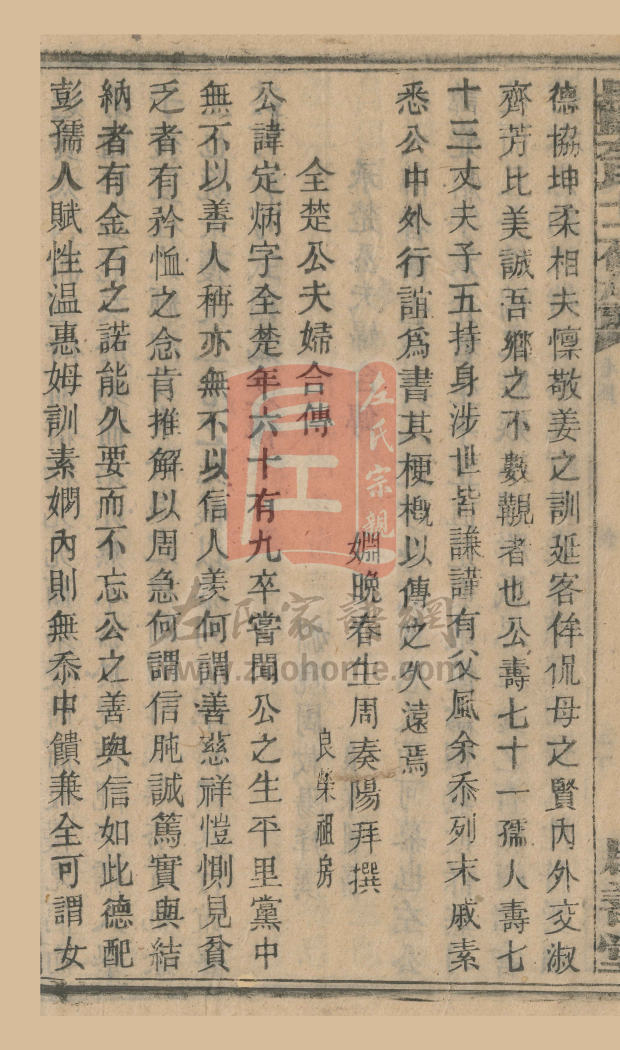 德協坤柔相夫懍敬姜之訓延客侔侃母之賢內外交淑
齊芳比美誠吾鄉之不數觀者也公壽七十一孺人壽七
十三丈夫子五持身涉世皆謙謹有父風余忝列末戚素
悉公中外行誼爲書其梗槪以傳之久遠焉
姻晚春生周奏陽拜撰
全楚公夫婦合傳
良榮祖房
公諱定炳字全楚年六十有九卒嘗聞公之生平里黨中
無不以善人稱亦無不以信人羨何謂善慈祥愷惻見貧
乏者有矜恤之念肯推解以周急何謂信肫誠篤實與結
納者有金石之諾能久要而不忘公之善與信如此德配
彭孺人賦性温惠姆訓素嫻內則無忝中饋兼全可謂女
左氏宗親
左氏家譜網
www.zuohome.com